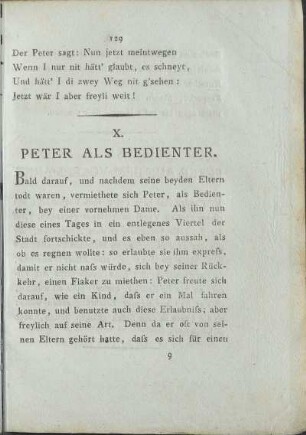 129
Der Peter sagt: Nun jetzt meintwegen
Wenn I nur nit hätt' glaubt, es schneyt,
Und hätt' I di zwey Weg nit g'sehen:
Jetzt wär I aber freyli weit!
X.
PETER ALS BEDIENTER.
Bald darauf, und nachdem seine beyden Eltern
todt waren, vermiethete sich Peter, als Bedien-
ter, bey einer vornehmen Dame. Als ihn nun
diese eines Tages in ein entlegenes Viertel der
Stadt fortschickte, und es eben so aussah, als
ob es regnen wollte: so erlaubte sie ihm expreſs,
damit er nicht naſs würde, sich bey seiner Rück-
kehr, einen Fiaker zu miethen: Peter freute sich
darauf, wie ein Kind, daſs er ein Mal fahren
konnte, und benutzte auch diese Erlaubniſs; aber
freylich auf seine Art. Denn da er oft von sei-
nen Eltern gehört hatte, daſs es sich für einen
9